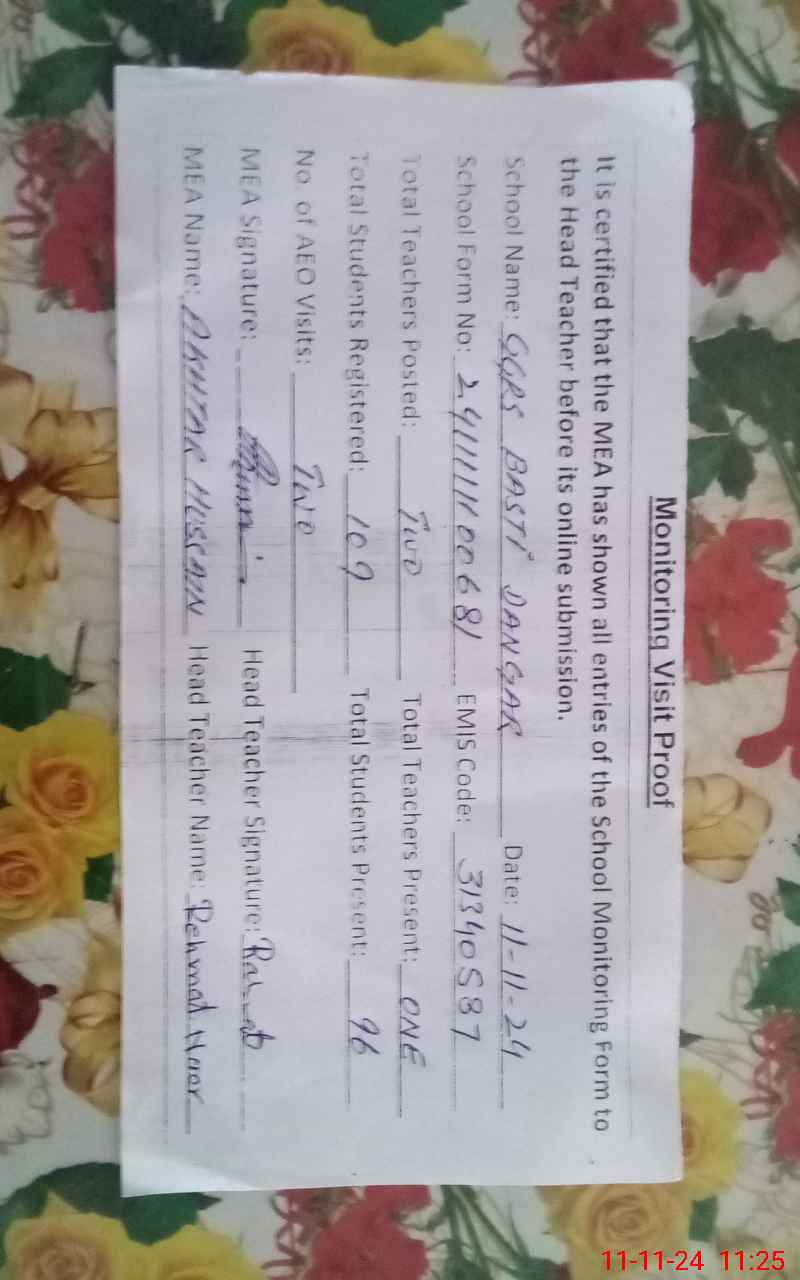 Monitoring Visit Proof
It is certified that the MEA has shown all entries of the School Monitoring Form to
the Head Teacher before its online submission.
School Name: GGPS BASTI DANGAR Date: 11-11-24
School Form No: 2411111100681 EMIS Code: 31340587
Total Teachers Posted: Two Total Teachers Present: ONE
Total Students Registered: 109 Total Students Present: 96
No. of AEO Visits: Two
MEA Signature: Head Teacher Signature:
MEA Name: AKHTAR HUSSAIN Head Teacher Name: Rehmat Noor
11-11-24 11:25